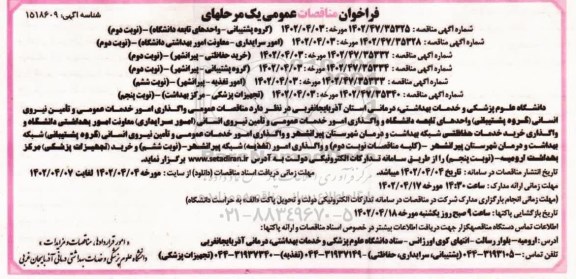 فراخوان مناقصات عمومی یک مرحله‌ای
شناسه آگهی: ۱۵۱۸۶۰۹
شماره آگهی مناقصه: ۱۴۰۲/۴۷/۳۵۳۲۵ مورخه: ۱۴۰۲/۰۴/۰۳ (گروه پشتیبانی- واحدهای تابعه دانشگاه)-(نوبت دوم)
شماره آگهی مناقصه: ۱۴۰۲/۴۷/۳۵۳۲۸ مورخه: ۱۴۰۲/۰۴/۰۳ (امور سرایداری - معاونت امور بهداشتی دانشگاه) -(نوبت دوم)
شماره آگهی مناقصه: ۱۴۰۲/۴۷/۳۵۳۳۲ مورخه: ۱۴۰۲/۰۴/۰۳ (خرید حفاظتی - پیرانشهر) -(نوبت دوم)
شماره آگهی مناقصه: ۱۴۰۲/۴۷/۳۵۳۳۴ مورخه: ۱۴۰۲/۰۴/۰۳ (گروه پشتیبانی - پیرانشهر) -(نوبت دوم)
شماره آگهی مناقصه: ۱۴۰۲/۴۷/۳۵۳۳۳ مورخه: ۱۴۰۲/۰۴/۰۳ (امور تغذیه - پیرانشهر) -(نوبت ششم)
شماره آگهی مناقصه: ۱۴۰۲/۴۷/۳۵۳۴۰ مورخه: ۱۴۰۲/۰۴/۰۳ (تجهیزات پزشکی - مرکز بهداشت) -(نوبت پنجم)
دانشگاه علوم پزشکی و خدمات بهداشتی، درمانی استان آذربایجانغربی در نظر دارد مناقصات عمومی واگذاری امور خدمات عمومی و تأمین نیروی
انسانی (گروه پشتیبانی) واحدهای تابعه دانشگاه و واگذاری امور خدمات عمومی و تأمین نیروی انسانی (امور سرایداری) معاونت امور بهداشتی دانشگاه و
واگذاری خرید خدمات حفاظتی شبکه بهداشت و درمان شهرستان پیرانشهر و واگذاری امور خدمات عمومی و تأمین نیروی انسانی (گروه پشتیبانی) شبکه
بهداشت و درمان شهرستان پیرانشهر -(کلیه مناقصات نوبت دوم) و واگذاری امور (تغذیه) شبکه پیرانشهر -(نوبت ششم) و خرید (تجهیزات پزشکی) مرکز
بهداشت ارومیه-(نوبت پنجم) را از طریق سامانه تدارکات الکترونیکی دولت به آدرس www.setadiran.ir برگزار نماید.
تاریخ انتشار مناقصات در سامانه: تاریخ ۱۴۰۲/۰۴/۰۴ میباشد. مهلت زمانی دریافت اسناد مناقصات (دانلود) از سایت: مورخه ۱۴۰۲/۰۴/۰۴ لغایت ۱۴۰۲/۰۴/۰۷
مهلت زمانی ارائه مدارک: ساعت ۱۴:۳۰ مورخه ۱۴۰۲/۰۴/۱۷
(مهلت زمانی انجام بارگزاری مدارک شرکت در مناقصات در سامانه تدارکات الکترونیکی دولت و تحویل پاکت «الف» به حراست دانشگاه)
تاریخ بازگشایی پاکتها: ساعت ۹ صبح روز یکشنبه مورخه ۱۴۰۲/۰۴/۱۸
اطلاعات تماس دستگاه مناقصهگزار جهت دریافت اطلاعات بیشتر در خصوص اسناد مناقصات و ارائه پاکتها:
آدرس: ارومیه- بلوار رسالت -انتهای کوی اورژانس - ستاد دانشگاه علوم پزشکی و خدمات بهداشتی، درمانی آذربایجانغربی
تلفن تماس: ۳۱۹۳۱۰۵-۰۴۴ (پشتیبانی، سرایداری، حفاظتی) ۳۱۹۳۷۱۴۹-۰۴۴ (تغذیه) ۳۱۹۳۷۲۴۰-۰۴۴ (تجهیزات پزشکی)
«امور قراردادها، مناقصات و مزایدات»
دانشگاه علوم پزشکی و خدمات بهداشتی درمانی آذربایجان غربی
۰۲۱-۸۸۳۴۹۶۷۰-۵